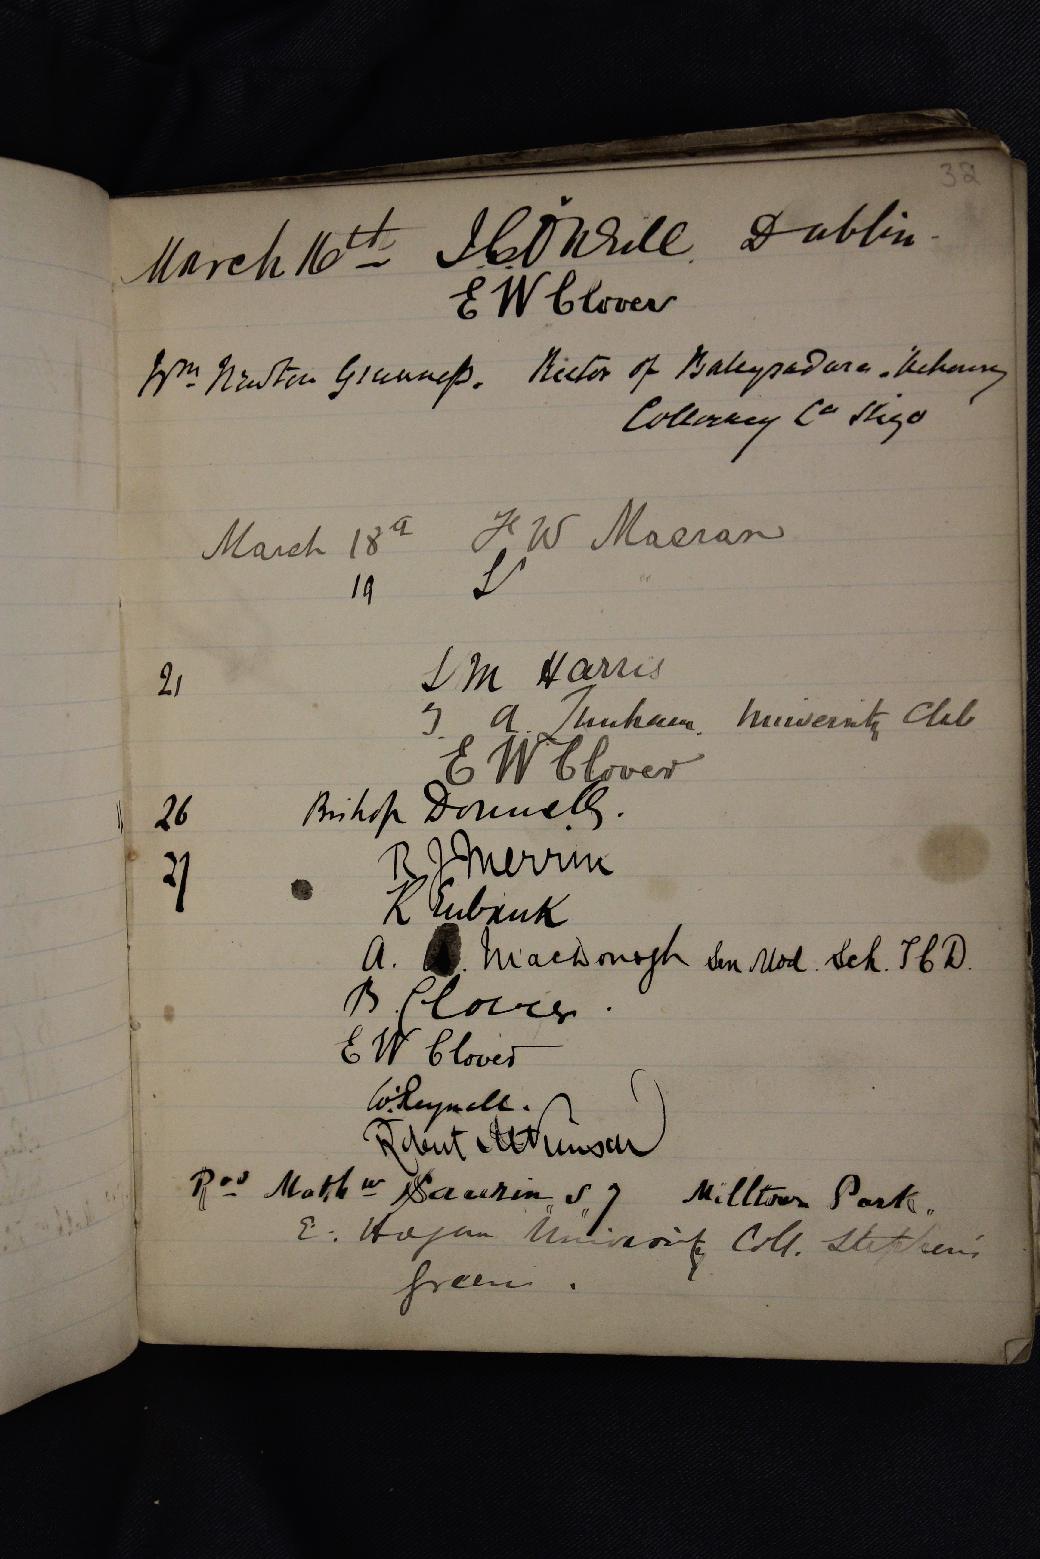 32
March 16th J.C. O'Neill. Dublin.
E W Clover
Wm Newton Guinness. Rector of Ballysadare.
Collooney Co Sligo
March 18th F W Macran
19 "
21 L M Harris
J. A. University Club
E W Clover
26 Bishop Donnelly.
27 R J Merrin
K Eubank
A. MacDonogh Sen Mod. Sch. T C D.
B Glover.
E W Clover
W. Reynell.
Robert Atkinson
Revd Matthw Saurin S J Milltown Park.
E. Hogan University Coll. Stephen's
Green.